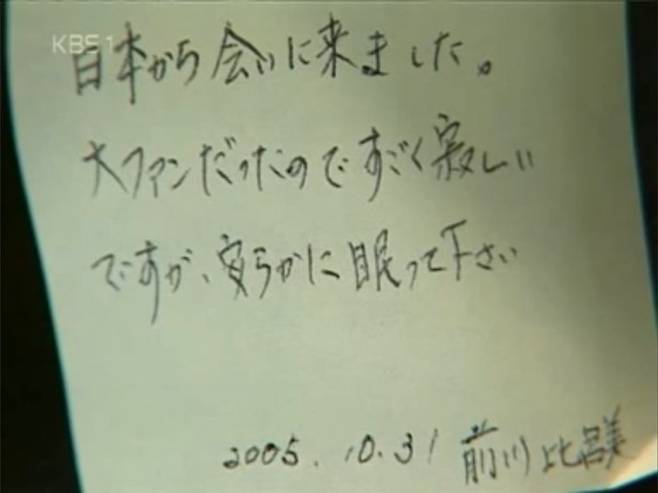 KBS 1
日本から会いに来ました。
大ファンだったのですごく寂しい
ですが、安らかに眠って下さい
2005.10.31 前川比呂美